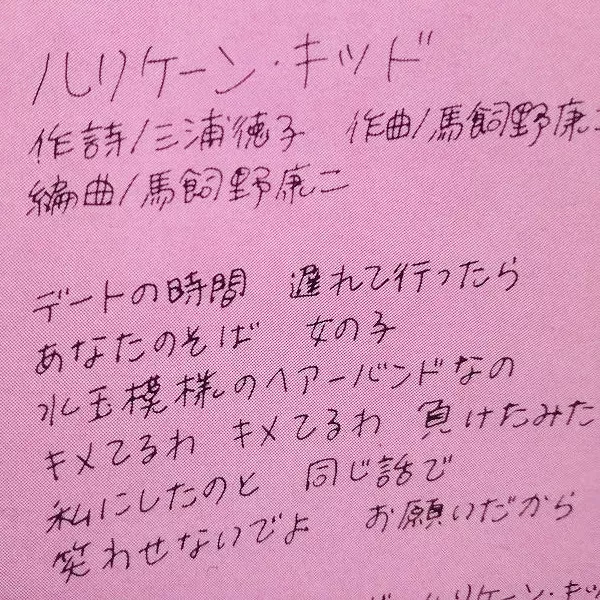 ハリケーン・キッド
作詩/三浦徳子 作曲/馬飼野康二
編曲/馬飼野康二
デートの時間 遅れて行ったら
あなたのそば 女の子
水玉模様のヘアーバンドなの
キメてるわ キメてるわ 負けたみた
私にしたのと 同じ話で
笑わせないでよ お願いだから
ハリケーン・キッ